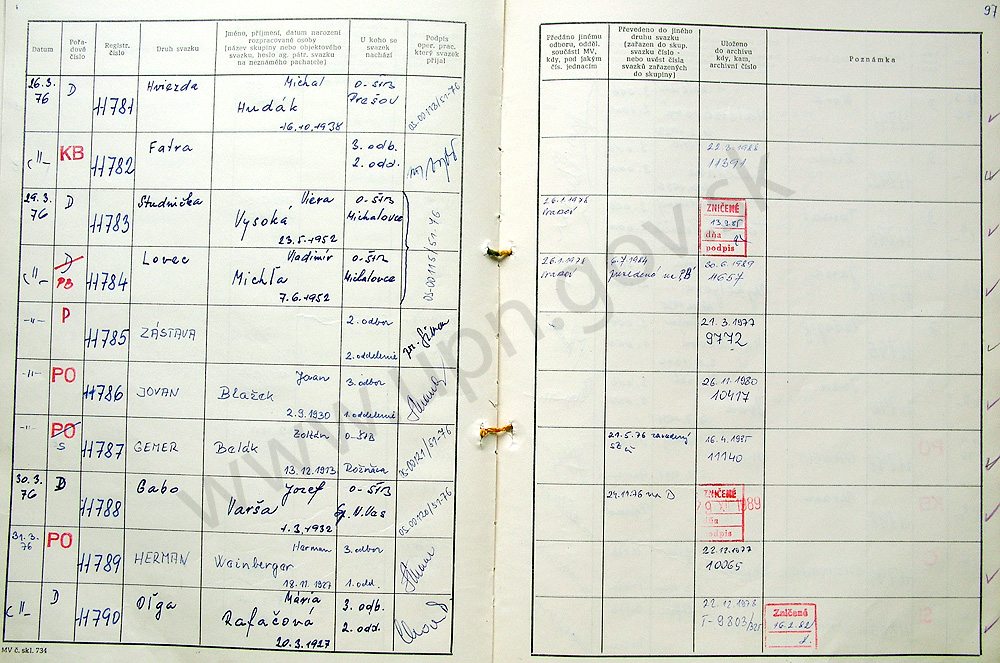 97
Datum
Pořa-
dové
číslo
Registr.
číslo
Druh svazku
Jméno, příjmení, datum narození
rozpracované osoby
(název skupiny nebo objektového
svazku, heslo ag. pátr. svazku
na neznámého pachatele)
U koho se
svazek
nachází
Podpis
oper. prac.
který svazek
přijal
Předáno jinému
odboru, odděl.
součásti MV,
kdy, pod jakým
čís. jednacím
Převedeno do jiného
druhu svazku
(zařazen do skup.
svazku číslo -
nebo uvést čísla
svazků zařazených
do skupiny)
Uloženo
do archivu
kdy, kam,
archivní číslo
Poznámka
26.3.
76
D
11781
Hviezda
Michal
Hudák
16.10.1938
O-ŠTB
Prešov
OS-00113/51-76
-"-
KB
11782
Fatra
3. odb.
2. odd.
22.3.1988
11391
29.3.
76
D
11783
Studnička
Viera
Vysoká
23.5.1952
O-ŠTB
Michalovce
OS-00115/51-76
26.1.1978
ZNIČENÉ
dňa
podpis
-"-
D
PB
11784
Lovec
Vladimír
Michľa
7.6.1952
O-ŠTB
Michalovce
26.1.1978
6.7.1984
30.6.1989
-"-
P
11785
ZÁSTAVA
2. odbor
2. oddelenie
21.3.1977
9772
-"-
PO
11786
JOVAN
Jovan
Blažek
2.9.1930
3. odbor
1. oddelenie
26.11.1980
10417
-"-
PO
S
11787
GEMER
Zoltán
Baldk
13.12.1913
O-ŠTB
Rožňava
OS-00121/51-76
21.5.76
16.4.1985
11140
30.3.
76
D
11788
Gabo
Jozef
Varša
1.3.1932
O-ŠTB
Sp. N. Ves
OS-00120/51-76
24.11.76 na D
ZNIČENÉ
1989
dňa
podpis
31.3.
76
PO
11789
HERMAN
Herman
Wainberger
18.11.1927
3. odbor
1. odd.
22.12.1977
10065
-"-
D
11790
Oľga
Mária
Rafačová
20.3.1927
3. odb.
2. odd.
22.12.1978
T-9803/325
Zničené
16.2.82
MV č. skl. 734
www.upn.gov.sk